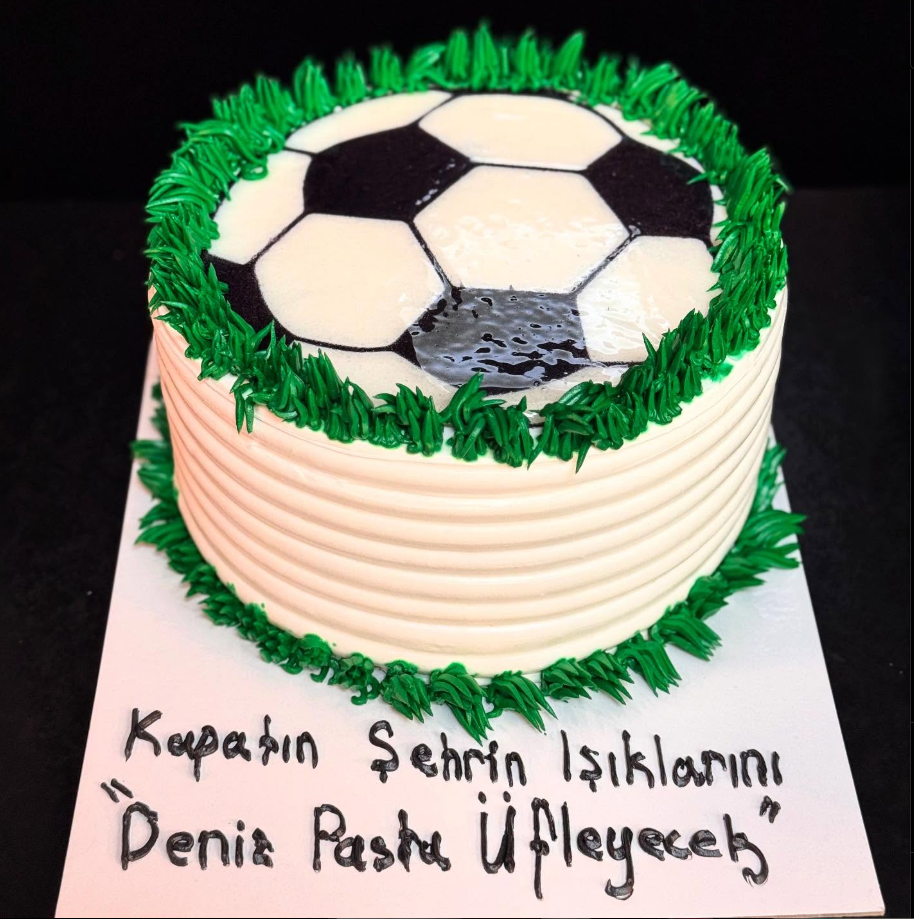 Kapatın Şehrin Işıklarını
"Deniz Pasta Üfleyecek"